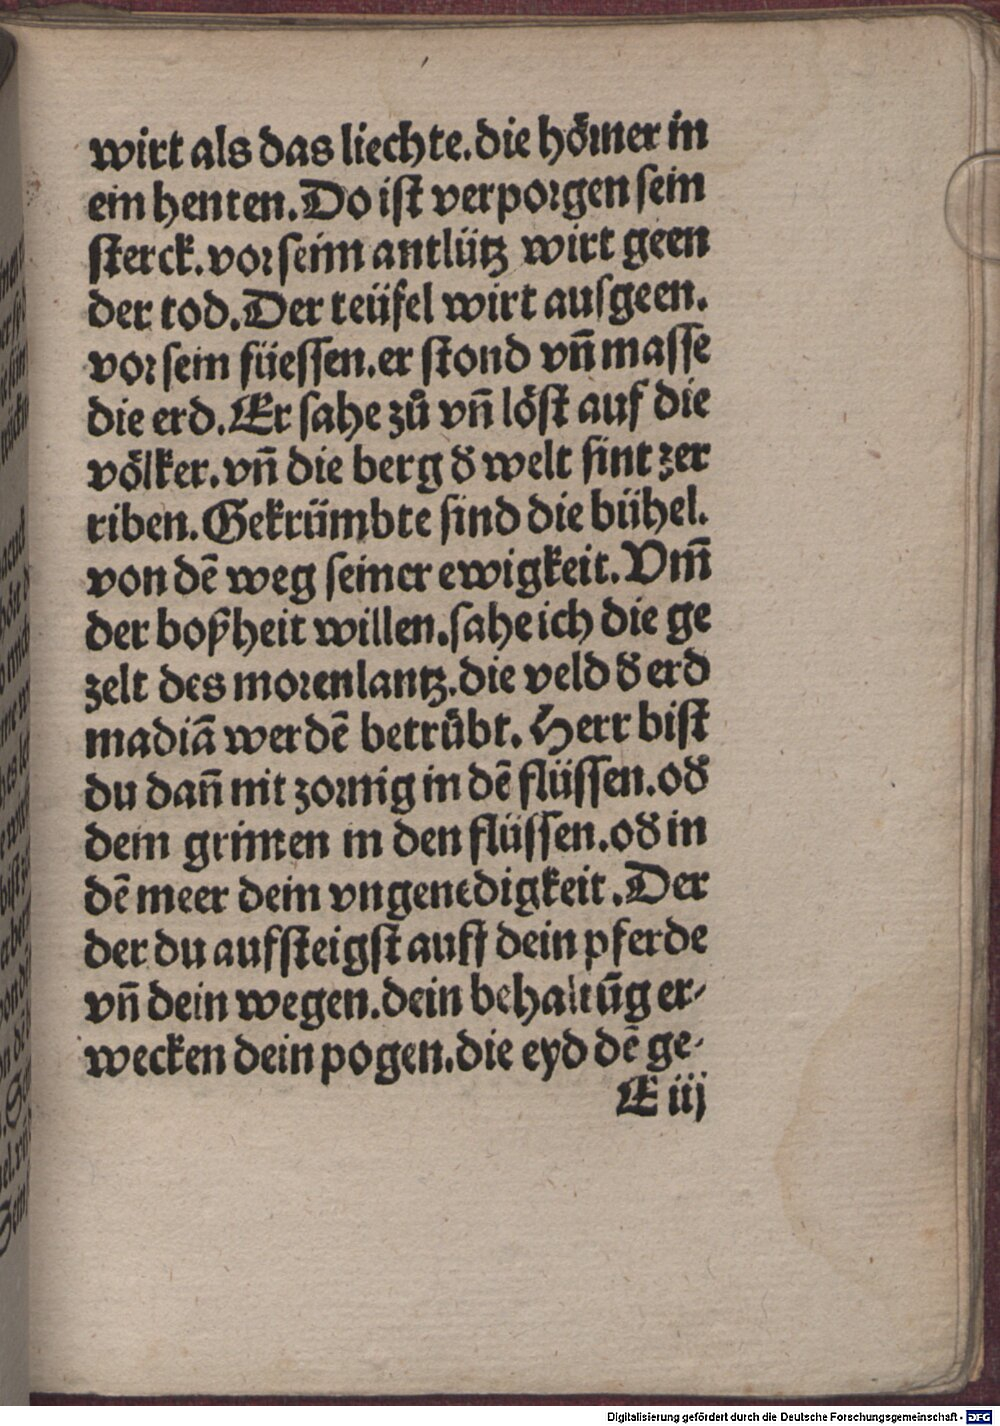 wirt als das liechte. die hörner in
ein henten. Do ist verporgen sein
sterck. vor seim antlütz wirt geen
der tod. Der teüfel wirt ausgeen.
vor sein füessen. er stond vn̄ masse
die erd. Er sahe zů vn̄ löst auf die
völker. vn̄ die berg đ welt sint zer
riben. Gekrümbte sind die bühel.
von dē weg seiner ewigkeit. Vm̄
der boßheit willen. sahe ich die ge
zelt des morenlantz. die veld đ erd
madiā werdē betrübt. Herr bist
du dan̄ nit zornig in dē flüssen. ođ
dein grimen in den flüssen. ođ in
dē meer dein vngenedigkeit. Der
der du aufsteigst auff dein pferde
vn̄ dein wegen. dein behaltūg er-
wecken dein pogen. die eyd dē ge-
E iij
Digitalisierung gefördert durch die Deutsche Forschungsgemeinschaft - DFG